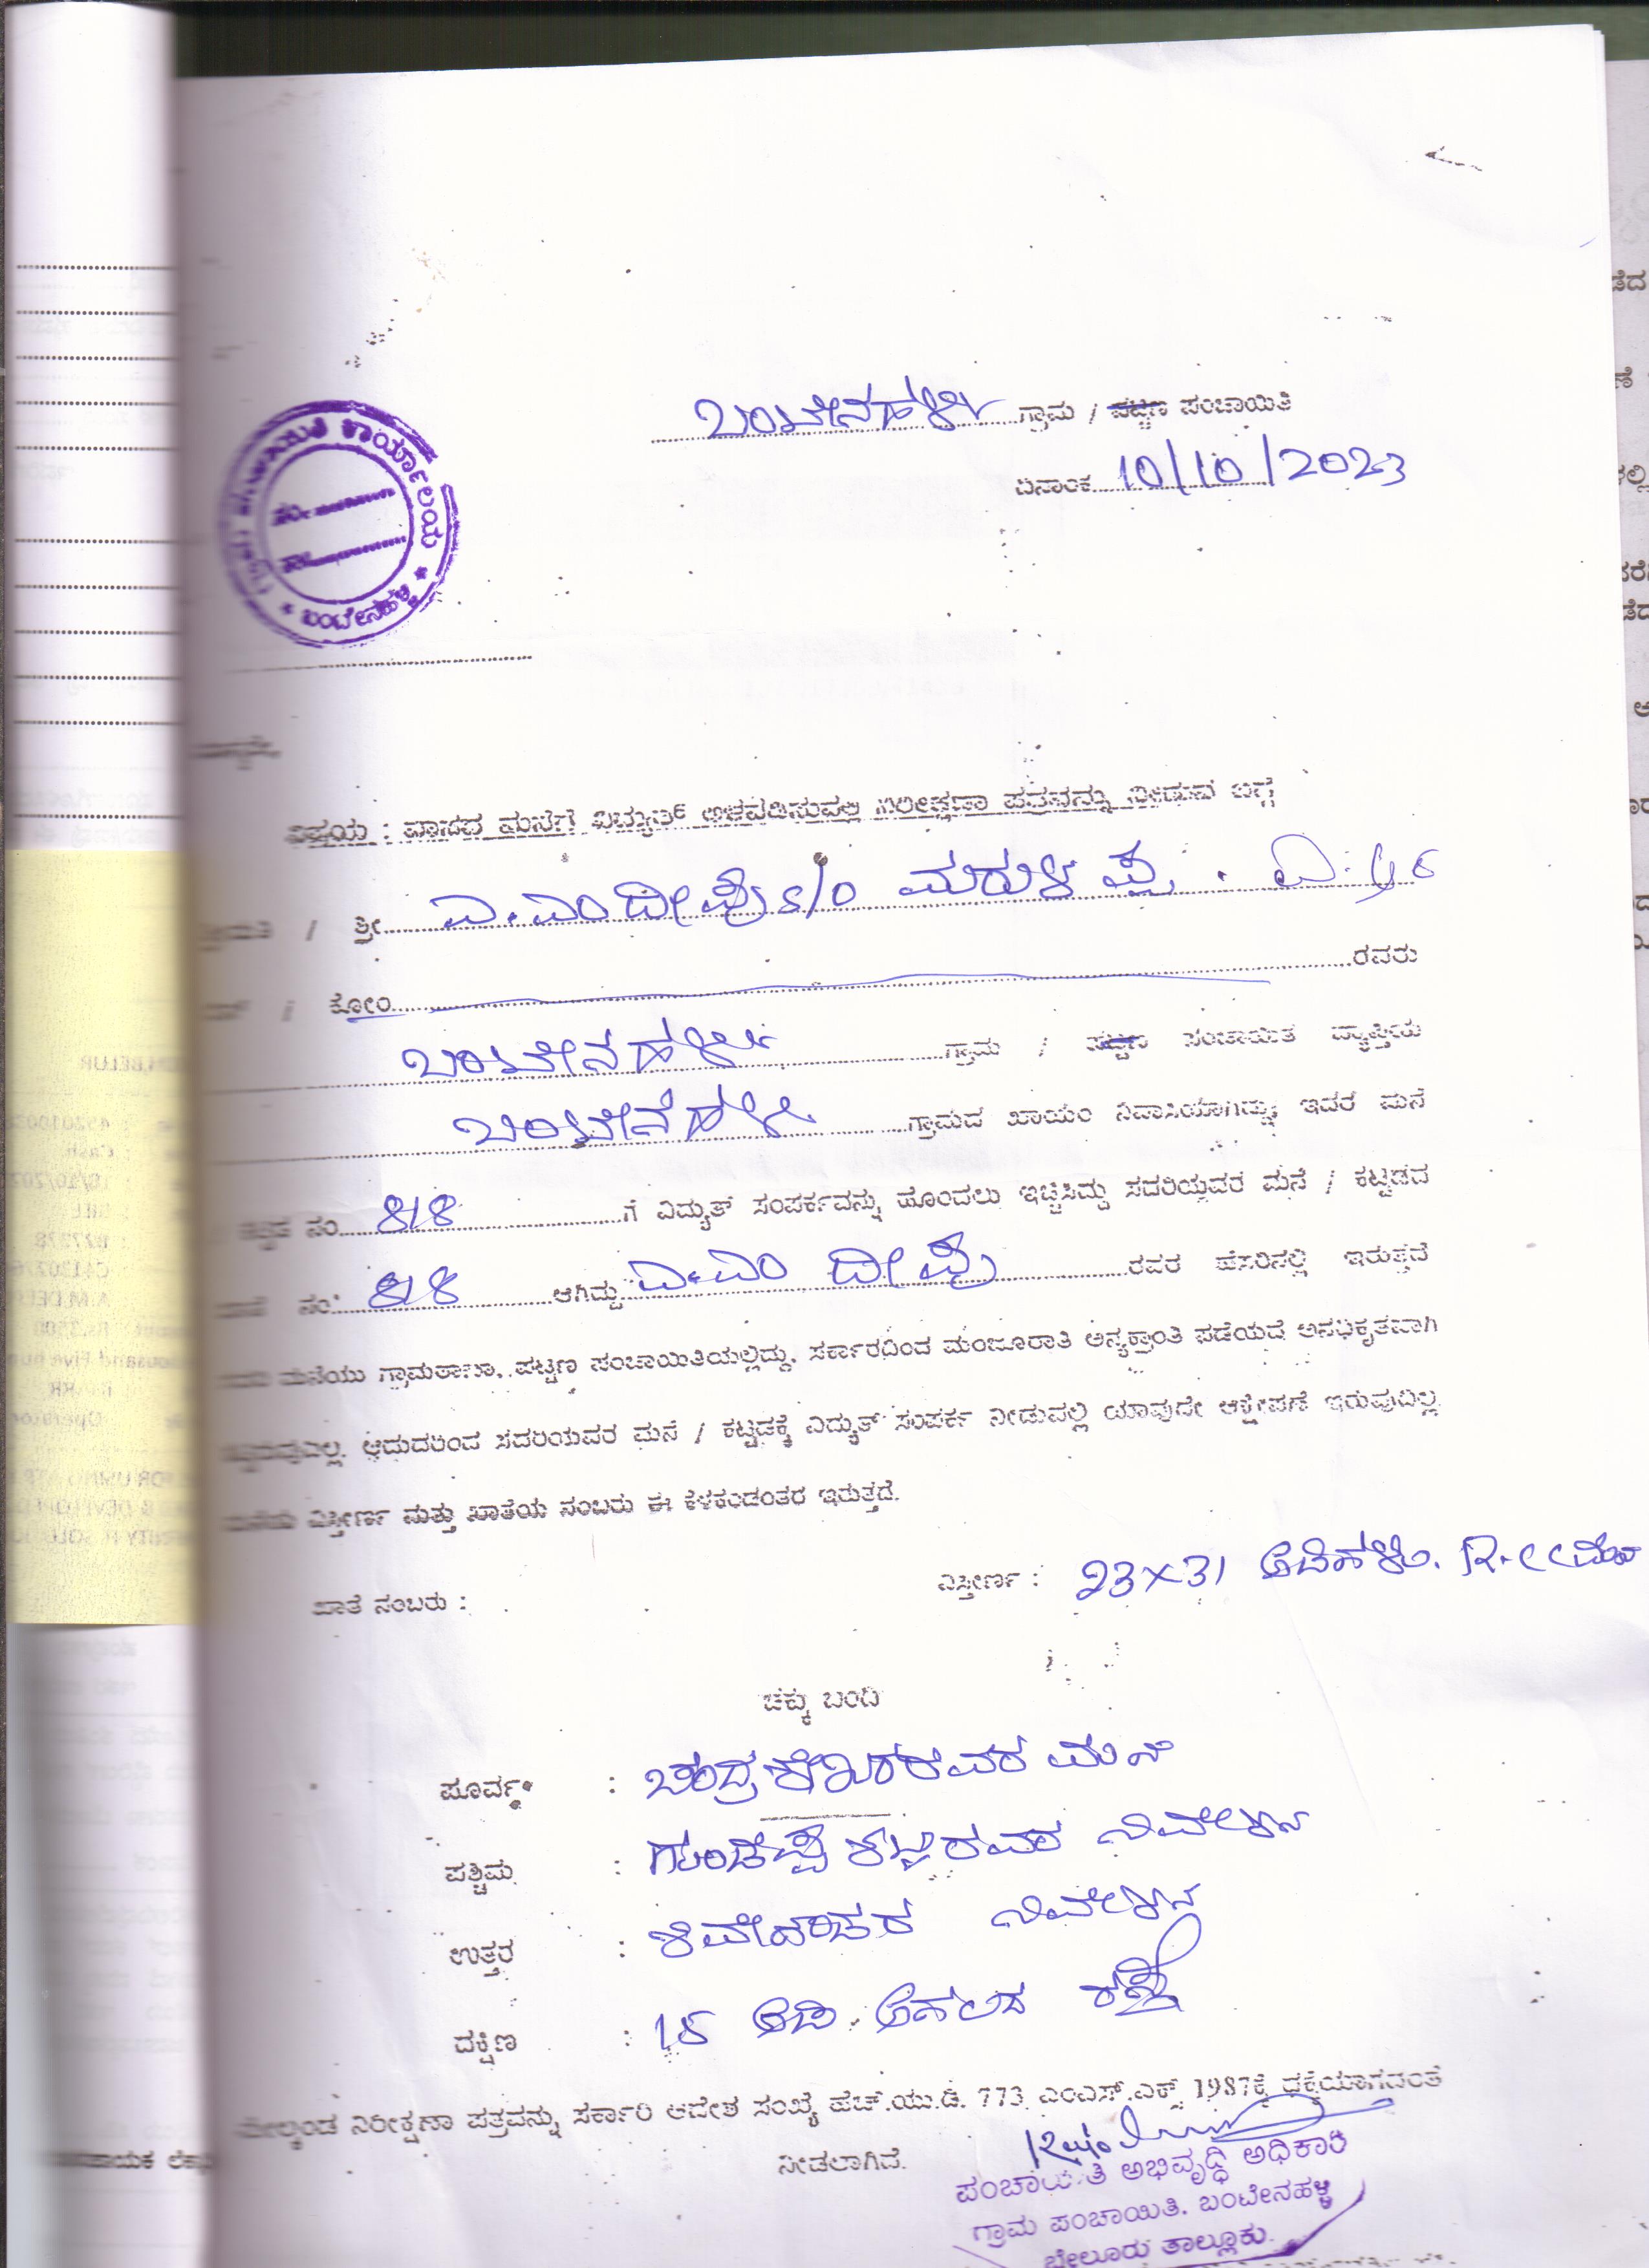 ಪಂಚಾಯಿತಿ ಕಾರ್ಯಾಲಯ
ನಂ.
ದಿ.
* ಬಂಟೇನಹಳ್ಳಿ *
ಬಂಟೇನಹಳ್ಳಿ ಗ್ರಾಮ / ಪಟ್ಟಣ ಪಂಚಾಯಿತಿ
ದಿನಾಂಕ 10/10/2023
ವಿಷಯ : ವಾಸದ ಮನೆಗೆ ವಿದ್ಯುತ್ ಅಳವಡಿಸುವಲ್ಲಿ ನಿರೀಕ್ಷಣಾ ಪತ್ರವನ್ನು ನೀಡುವ ಬಗ್ಗೆ
/ ಶ್ರೀ ಎ.ಎಂ ದೀಪು s/o ಮರುಳಪ್ಪ.
/ ಕೋಂ ರವರು
ಬಂಟೇನಹಳ್ಳಿ ಗ್ರಾಮ / ಪಟ್ಟಣ ಪಂಚಾಯಿತಿ ವ್ಯಾಪ್ತಿಯ
ಬಂಟೇನಹಳ್ಳಿ ಗ್ರಾಮದ ಖಾಯಂ ನಿವಾಸಿಯಾಗಿದ್ದು, ಇವರ ಮನೆ
ಕಟ್ಟಡ ನಂ 818 ಗೆ ವಿದ್ಯುತ್ ಸಂಪರ್ಕವನ್ನು ಹೊಂದಲು ಇಚ್ಚಿಸಿದ್ದು ಸದರಿಯವರ ಮನೆ / ಕಟ್ಟಡದ
ಖಾತೆ ನಂ 818 ಆಗಿದ್ದು ಎ.ಎಂ ದೀಪು ರವರ ಹೆಸರಿನಲ್ಲಿ ಇರುತ್ತದೆ
ಮನೆಯು ಗ್ರಾಮಠಾಣಾ, ಪಟ್ಟಣ ಪಂಚಾಯಿತಿಯಲ್ಲಿದ್ದು, ಸರ್ಕಾರದಿಂದ ಮಂಜೂರಾತಿ ಅನ್ಯಕ್ರಾಂತಿ ಪಡೆಯದೆ ಅನಧಿಕೃತವಾಗಿ
ಕಟ್ಟಿರುವುದಿಲ್ಲ. ಆದುದರಿಂದ ಸದರಿಯವರ ಮನೆ / ಕಟ್ಟಡಕ್ಕೆ ವಿದ್ಯುತ್ ಸಂಪರ್ಕ ನೀಡುವಲ್ಲಿ ಯಾವುದೇ ಆಕ್ಷೇಪಣೆ ಇರುವುದಿಲ್ಲ.
ಮನೆಯ ವಿಸ್ತೀರ್ಣ ಮತ್ತು ಖಾತೆಯ ನಂಬರು ಈ ಕೆಳಕಂಡಂತರ ಇರುತ್ತದೆ.
ಖಾತೆ ನಂಬರು : ವಿಸ್ತೀರ್ಣ : 23x31 ಅಡಿಗಳು.
ಚಕ್ಕು ಬಂದಿ
ಪೂರ್ವಕ್ಕೆ : ಚಂದ್ರಶೇಖರ್‌ರವರ ಮನೆ
ಪಶ್ಚಿಮ : ನಿವೇಶನ
ಉತ್ತರ : ನಿವೇಶನ
ದಕ್ಷಿಣ : 15 ಅಡಿ ಅಗಲದ ರಸ್ತೆ
ಮೇಲ್ಕಂಡ ನಿರೀಕ್ಷಣಾ ಪತ್ರವನ್ನು ಸರ್ಕಾರಿ ಆದೇಶ ಸಂಖ್ಯೆ ಹೆಚ್.ಯು.ಡಿ. 773 ಎಂಎಸ್.ಎಕ್ಸ್ 1987ಕ್ಕೆ ಧಕ್ಕೆಯಾಗದಂತೆ
ನೀಡಲಾಗಿದೆ.
ಪಂಚಾಯಿತಿ ಅಭಿವೃದ್ಧಿ ಅಧಿಕಾರಿ
ಗ್ರಾಮ ಪಂಚಾಯಿತಿ. ಬಂಟೇನಹಳ್ಳಿ
ಬೇಲೂರು ತಾಲ್ಲೂಕು.